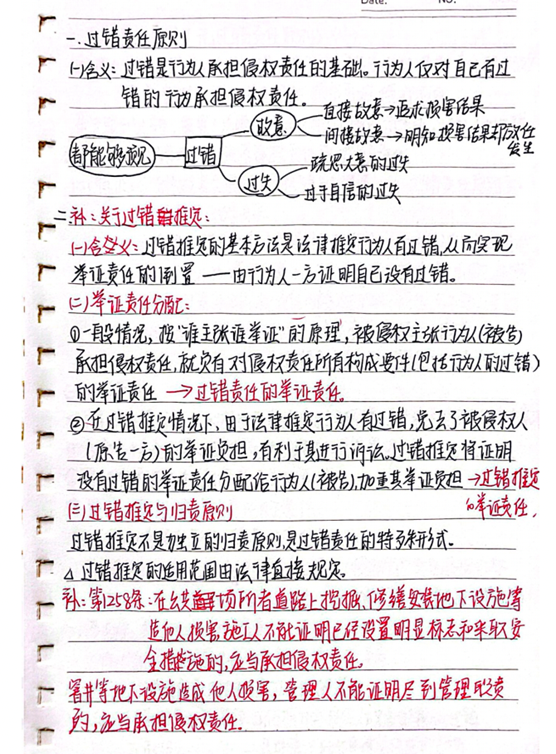 Date:
No:
一.过错责任原则
(一)含义:过错是行为人承担侵权责任的基础。行为人仅对自己有过
错的行为承担侵权责任。
都能够预见
过错
故意
直接故意→追求损害结果
间接故意→明知损害结果却放任
发生
过失
疏忽大意的过失
过于自信的过失
二.补:关于过错推定:
(一)含义:过错推定的基本方法是法律推定行为人有过错,从而实现
举证责任的倒置——由行为人一方证明自己没有过错。
(二)举证责任分配:
①一般情况,按“谁主张谁举证”的原理,被侵权主张行为人(被告)
承担侵权责任,就应有对侵权责任所有构成要件(包括行为人的过错)
的举证责任→过错责任的举证责任。
②在过错推定情况下,由于法律推定行为人有过错,免去了被侵权人
(原告一方)的举证负担,有利于其进行诉讼。过错推定将证明
没有过错的举证责任分配给行为人(被告),加重其举证负担→过错推定
的举证责任.
(三)过错推定与归责原则
过错推定不是独立的归责原则,是过错责任的特殊形式。
△过错推定的适用范围由法律直接规定。
补:第1258条:在公共场所或者道路上挖掘、修缮安装地下设施等
造成他人损害,施工人不能证明已经设置明显标志和采取安
全措施的,应当承担侵权责任。
窨井等地下设施造成他人损害,管理人不能证明尽到管理职责
的,应当承担侵权责任.